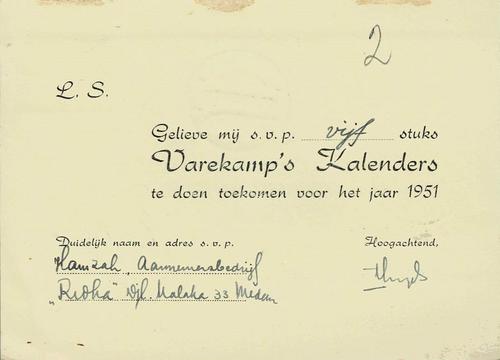 2
L. S.
Gelieve mij s.v.p. vijf stuks
Varekamp's Kalenders
te doen toekomen voor het jaar 1951
Duidelijk naam en adres s.v.p. Hoogachtend,
Hamzah, Aannemersbedrijf
"Ridha" Djl. Malaka 33 Medan